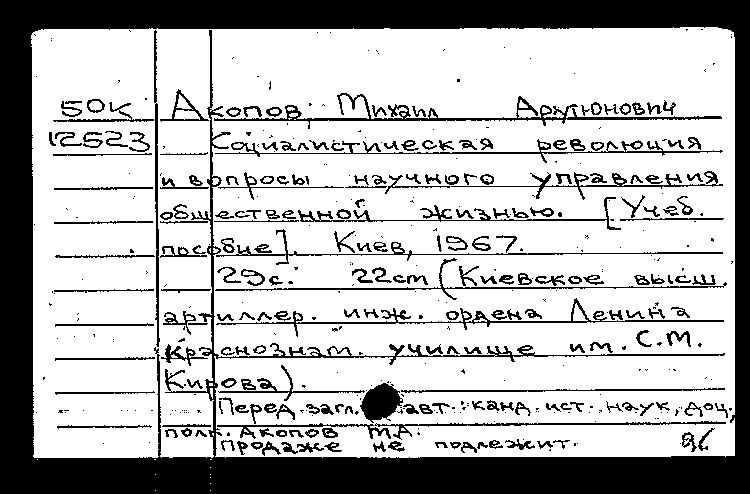 50К Акопов, Михаил Арутюнович
12523 Социалистическая революция
и вопросы научного управления
общественной жизнью. [Учеб.
пособие]. Киев, 1967.
29с. 22cm (Киевское высш.
артиллер. инж. ордена Ленина
Краснознам. училище им. С.М.
Кирова).
Перед загл. авт.: канд. ист. наук, доц.,
полк. Акопов М.А.
Продаже не подлежит.